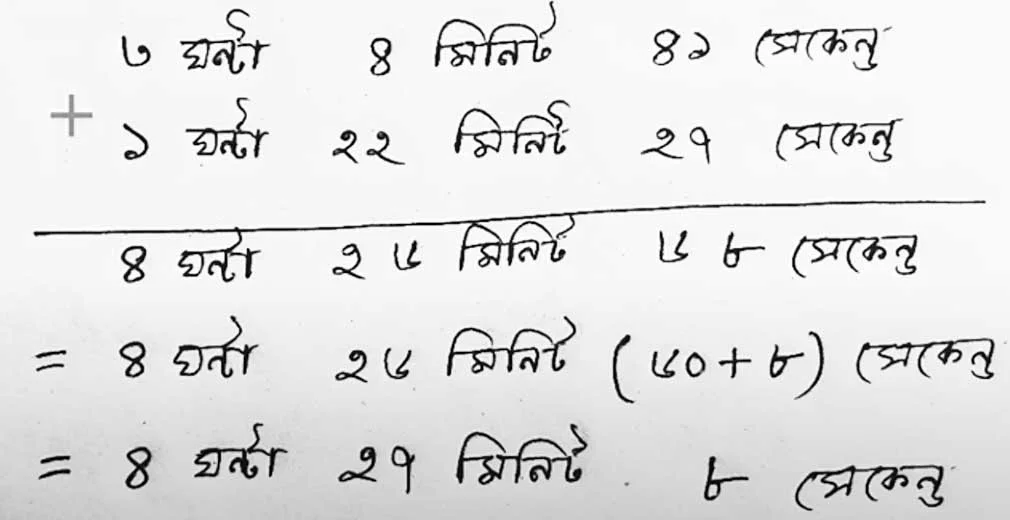 ৩ ঘন্টা ৪ মিনিট ৪১ সেকেন্ড
+ ১ ঘন্টা ২২ মিনিট ২৭ সেকেন্ড
৪ ঘন্টা ২৬ মিনিট ৬৮ সেকেন্ড
= ৪ ঘন্টা ২৬ মিনিট (৬০+৮) সেকেন্ড
= ৪ ঘন্টা ২৭ মিনিট ৮ সেকেন্ড